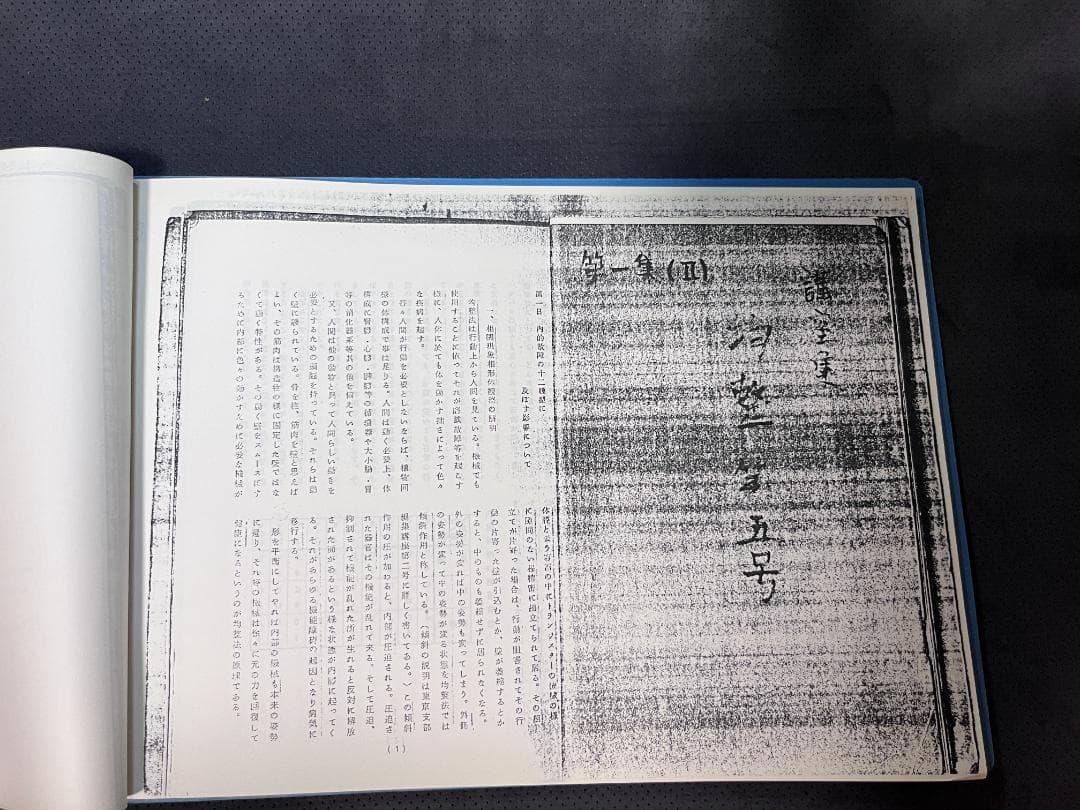 講座集
均整 五号
第一集(Ⅱ)
第一日 内的故障の十二種型に
及ぼす影響について
一、相関現象相形体観察の原明
均整法は行動上から人間を見ている。機械でも
使用することに依ってそれが磨滅故障等を起こす
様に、人体に於ても体を動かす拙さによって色々
な疾病を起す。
吾々人間が行動を必要としないならば、植物同
様の体構成で事は足りる。人間は動く必要上、体
構成に腎臓・心臓・肺臓等の循環器や大小腸・胃
等の消化器系等其の他を備えている。
又、人間は他の動物と異って人間らしい動きを
必要とするための頭脳を持っている。それらは動
く壁に護られている。骨を柱、筋肉を壁と思えば
よい、その筋肉は構造物の様に固定した壁ではな
くて動く特性がある。その動く壁をスムースにす
るために内部に色々の動かすために必要な機械が
体壁と云う容器の中にトランジスターの機械の様
に隙間のない程精密に組立てられて居る。その組
立てが片寄った場合は、行動が阻害されてその行
動の片寄った壁が引込むとか、壁が萎縮するとか
すると、中のものも萎縮せずに居られなくなる。
外の姿勢が変れば中の姿勢も変ってしまう。外観
の姿勢が変って中の姿勢が変る状態を均整法では
傾斜作用と称している。(傾斜の説明は東京支部
編集講座第二号に詳しく書いてある。)この傾斜
作用の圧が加わると、内部が圧迫される。圧迫さ
れた器官はその機能が乱れて来る。そして圧迫、
抑制されて機能が乱れた所が生れると反対に解放
された所があるという様な状態が内部に起ってく
る。それがあらゆる機能障碍の起因となり病気に
移行する。
形を平衡にしてやれば内部の機械も本来の姿勢
に還り、それ等の機械は徐々に元の力を回復して
健康になるというのが均整法の原理である。
(1)